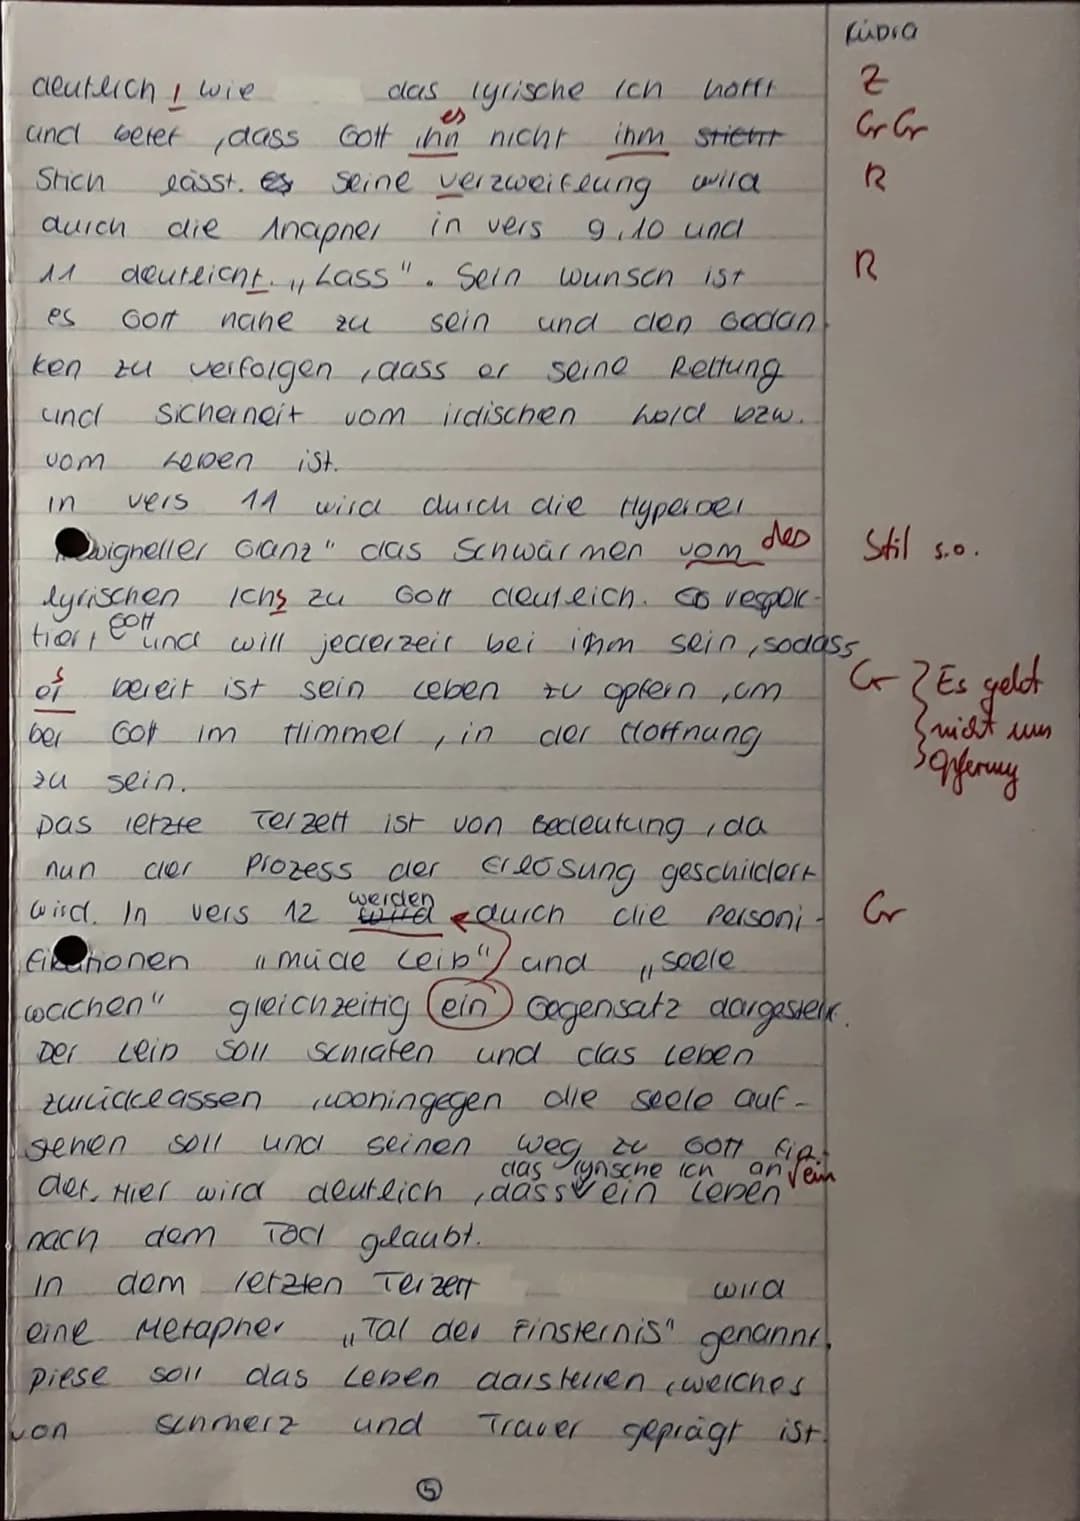 Kübra
deutlich, wie das lyrische Ich hofft Z
es
und betet, dass Gott ihn nicht ihm sticht Gr Gr
Stich lässt. es seine verzweifelung wird R
durch die Anapher in vers 9,10 und
11 deutlicht. „Lass". Sein wunsch ist R
es Gott nahe zu sein und den Gedan
ken zu verfolgen, dass er seine Rettung
und Sicherheit vom irdischen bzw.
vom Leben ist.
in vers 11 wird durch die Hyperbel
Glanz" das Schwärmen vom des Stil s.o.
lyrischen Ichs zu Gott deutlich. Es respek-
Gott
tiert und will jederzeit bei ihm sein, sodass
es bereit ist sein Leben zu opfern, um Gr Es geht
bei Gott im Himmel, in der Hoffnung nicht um
zu sein. Opferung
Das letzte Terzett ist von Bedeutung, da
nun der Prozess der Erlösung geschildert
werden
wird. In vers 12 wird durch die Personi- Gr
fikationen „müde Leib" und „Seele
wachen" gleichzeitig ein Gegensatz dargestellt.
Der Leib soll schlafen und das Leben
zurücklassen, wohingegen die Seele auf-
gehen soll und seinen weg zu Gott fin-
das lyrische ich an ein
det. Hier wird deutlich, dass ein Leben
nach dem Tod glaubt.
In dem letzten Terzett wird
eine Metapher „Tal der Finsternis" genannt.
Diese soll das Leben darstellen, welches
von Schmerz und Trauer geprägt ist.
5